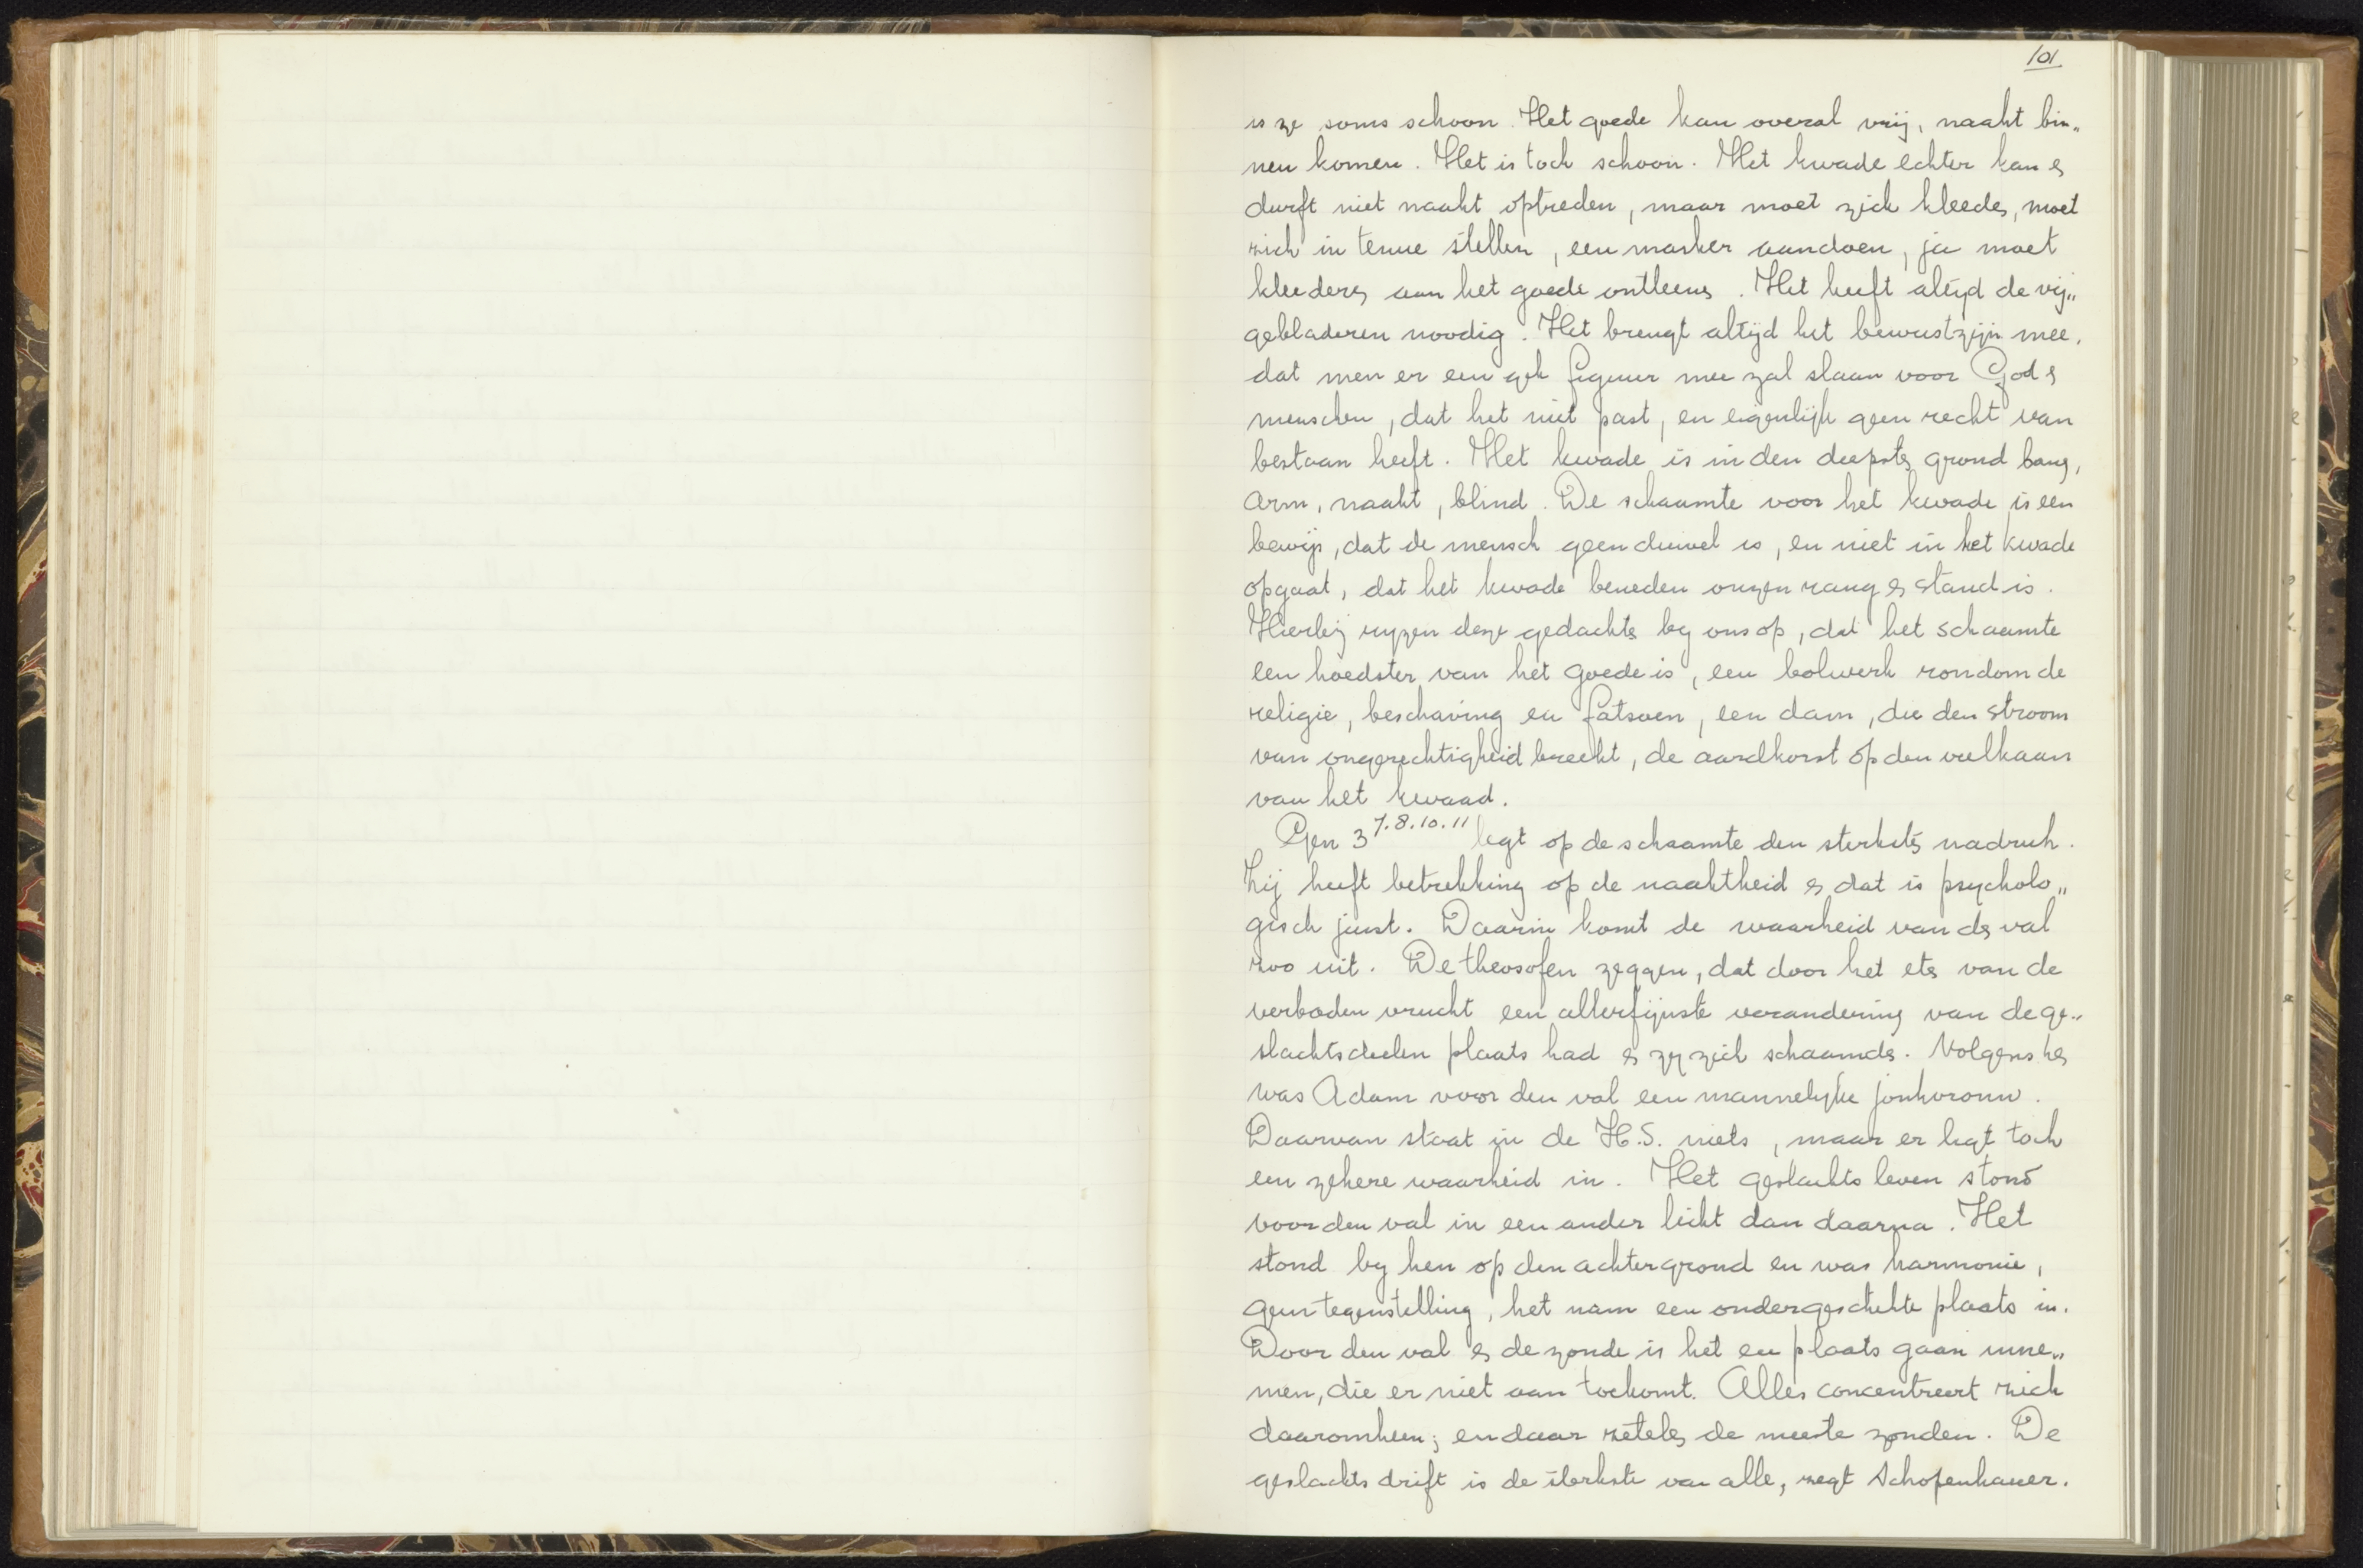 101.
is ze soms schoon. Het goede kan overal vrij, naakt bin„
nen komen. Het is toch schoon. Het kwade echter kan &
durft niet naakt optreden, maar moet zich kleeden, moet
zich in tenue stellen, een masker aandoen, ja moet
kleederen aan het goede ontleenen. Het heeft altijd de vij„
gebladeren noodig. Het brengt altijd het bewustzijn mee,
dat men er een gek figuur mee zal slaan voor God &
menschen, dat het niet past, en eigenlijk geen recht van
bestaan heeft. Het kwade is in den diepsten grond bang,
arm, naakt, blind. De schaamte voor het kwade is een
bewijs, dat de mensch geen duivel is, en niet in het kwade
opgaat, dat het kwade beneden onzen rang & stand is.
Hierbij rijzen deze gedachten bij ons op, dat het schaamte
een hoedster van het goede is, een bolwerk rondom de
religie, beschaving en fatsoen, een dam, die den stroom
van ongerechtigheid breekt, de aardkorst op den vulkaan
van het kwaad.
Gen 3 7.8.10.11 legt op de schaamte den sterksten nadruk.
Zij heeft betrekking op de naaktheid & dat is psycholo„
gisch juist. Daarin komt de waarheid van den val
zoo uit. De theosofen zeggen, dat door het eten van de
verboden vrucht een allerfijnste verandering van de ge„
slachtsdeelen plaats had & zij zich schaamden. Volgens hen
was Adam voor den val een mannelijke jonkvrouw.
Daarvan staat in de H.S. niets, maar er ligt toch
een zekere waarheid in. Het geslachts leven stond
voor den val in een ander licht dan daarna. Het
stond bij hen op den achtergrond en was harmonie,
geen tegenstelling, het nam een ondergeschikte plaats in.
Door den val & de zonde is het een plaats gaan inne„
men, die er niet aan toekomt. Alles concentreert zich
daaromheen; en daar zetelen de meeste zonden. De
geslachts drift is de sterkste van alle, zegt Schopenhauer.